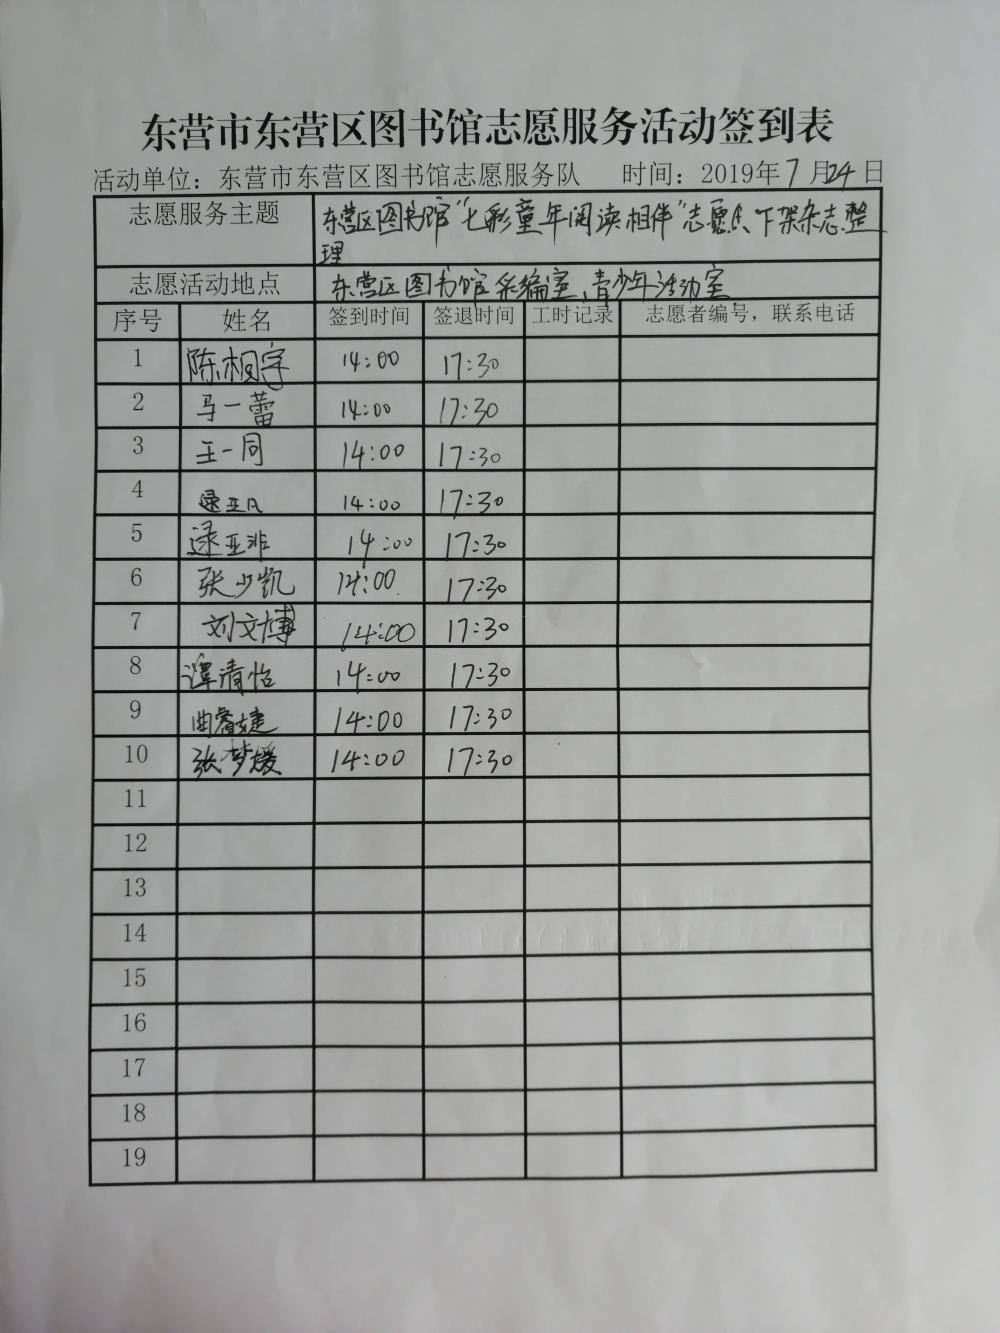 东营市东营区图书馆志愿服务活动签到表
活动单位：东营市东营区图书馆志愿服务队 时间：2019年7月24日
志愿服务主题 东营区图书馆“七彩童年阅读相伴”志愿、下架杂志整
理
志愿活动地点 东营区图书馆采编室、青少年活动室
序号 姓名 签到时间 签退时间 工时记录 志愿者编号，联系电话
1 陈桐宇 14:00 17:30
2 马一蕾 14:00 17:30
3 王一同 14:00 17:30
4 逯亚凡 14:00 17:30
5 逯亚非 14:00 17:30
6 张少凯 14:00 17:30
7 刘文博 14:00 17:30
8 谭清怡 14:00 17:30
9 曲睿婕 14:00 17:30
10 张梦媛 14:00 17:30
11
12
13
14
15
16
17
18
19